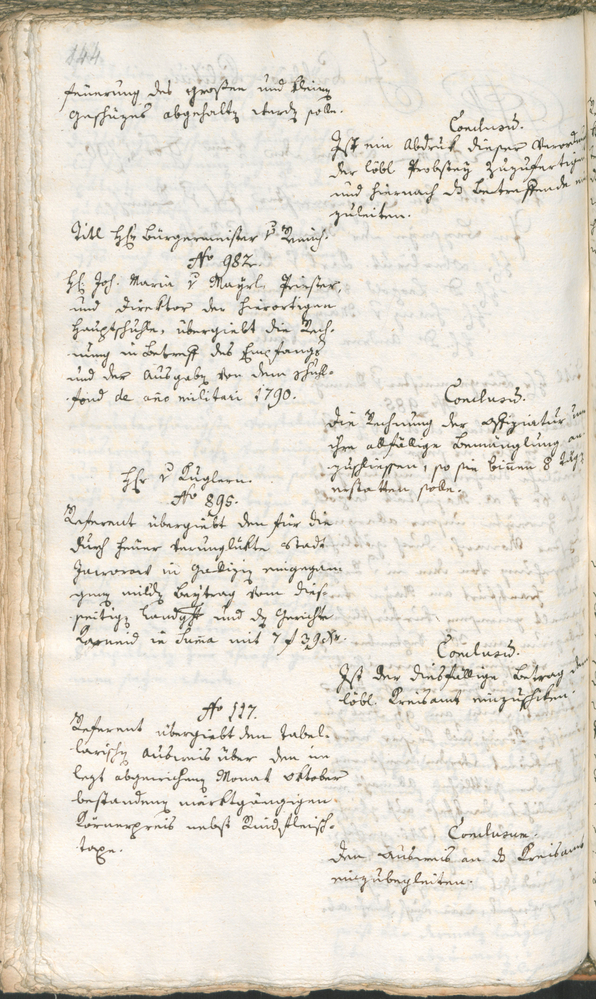 144.
feuerung des grossen und kleinen
geschüzes abgehalten werden solle.
Conclusum.
Ist ein Abdruk dieser Verord
der löbl Probstey zuzufertigen
und hiernach das betreffende
zuleiten.
Titl Hℓ Bürgermeister v
No 982.
Hℓ Joh. Maria v Mayrl, Priester,
und Direktor der hierortigen
Hauptschuhle, übergiebt die Rech-
nung in betreff des Empfangs
und der Ausgaben von dem Schuhl-
fond de año militari 1790.
Conclusum.
Die Rechnung der Offiziatur um
ihre allfällige Bemänglung an-
zuschliessen, so sie binnen 8 täg
erstatten solle.
Hℓr v Kuglern.
No 895.
Referent übergiebt den für die
durch feuer verunglükte Stadt
in Galizien eingegan-
genen milden Beytrag vom dies-
seitigen Landgℓt und des Gerichts
Karneid in Suma mit 7 f 39 xr.
Conclusum.
Ist der diesfällige Betrag dem
löbl. Kreisamt einzuschiken.
No 117.
Referent übergiebt den Tabel-
larischen Ausweis über den im
lezt abgewichenen Monat Oktober
bestandenen marktgängigen
Körnerpreis nebst Rindfleisch-
taxe.
Conclusum.
Den Ausweis an das Kreisamt
einzubegleiten.